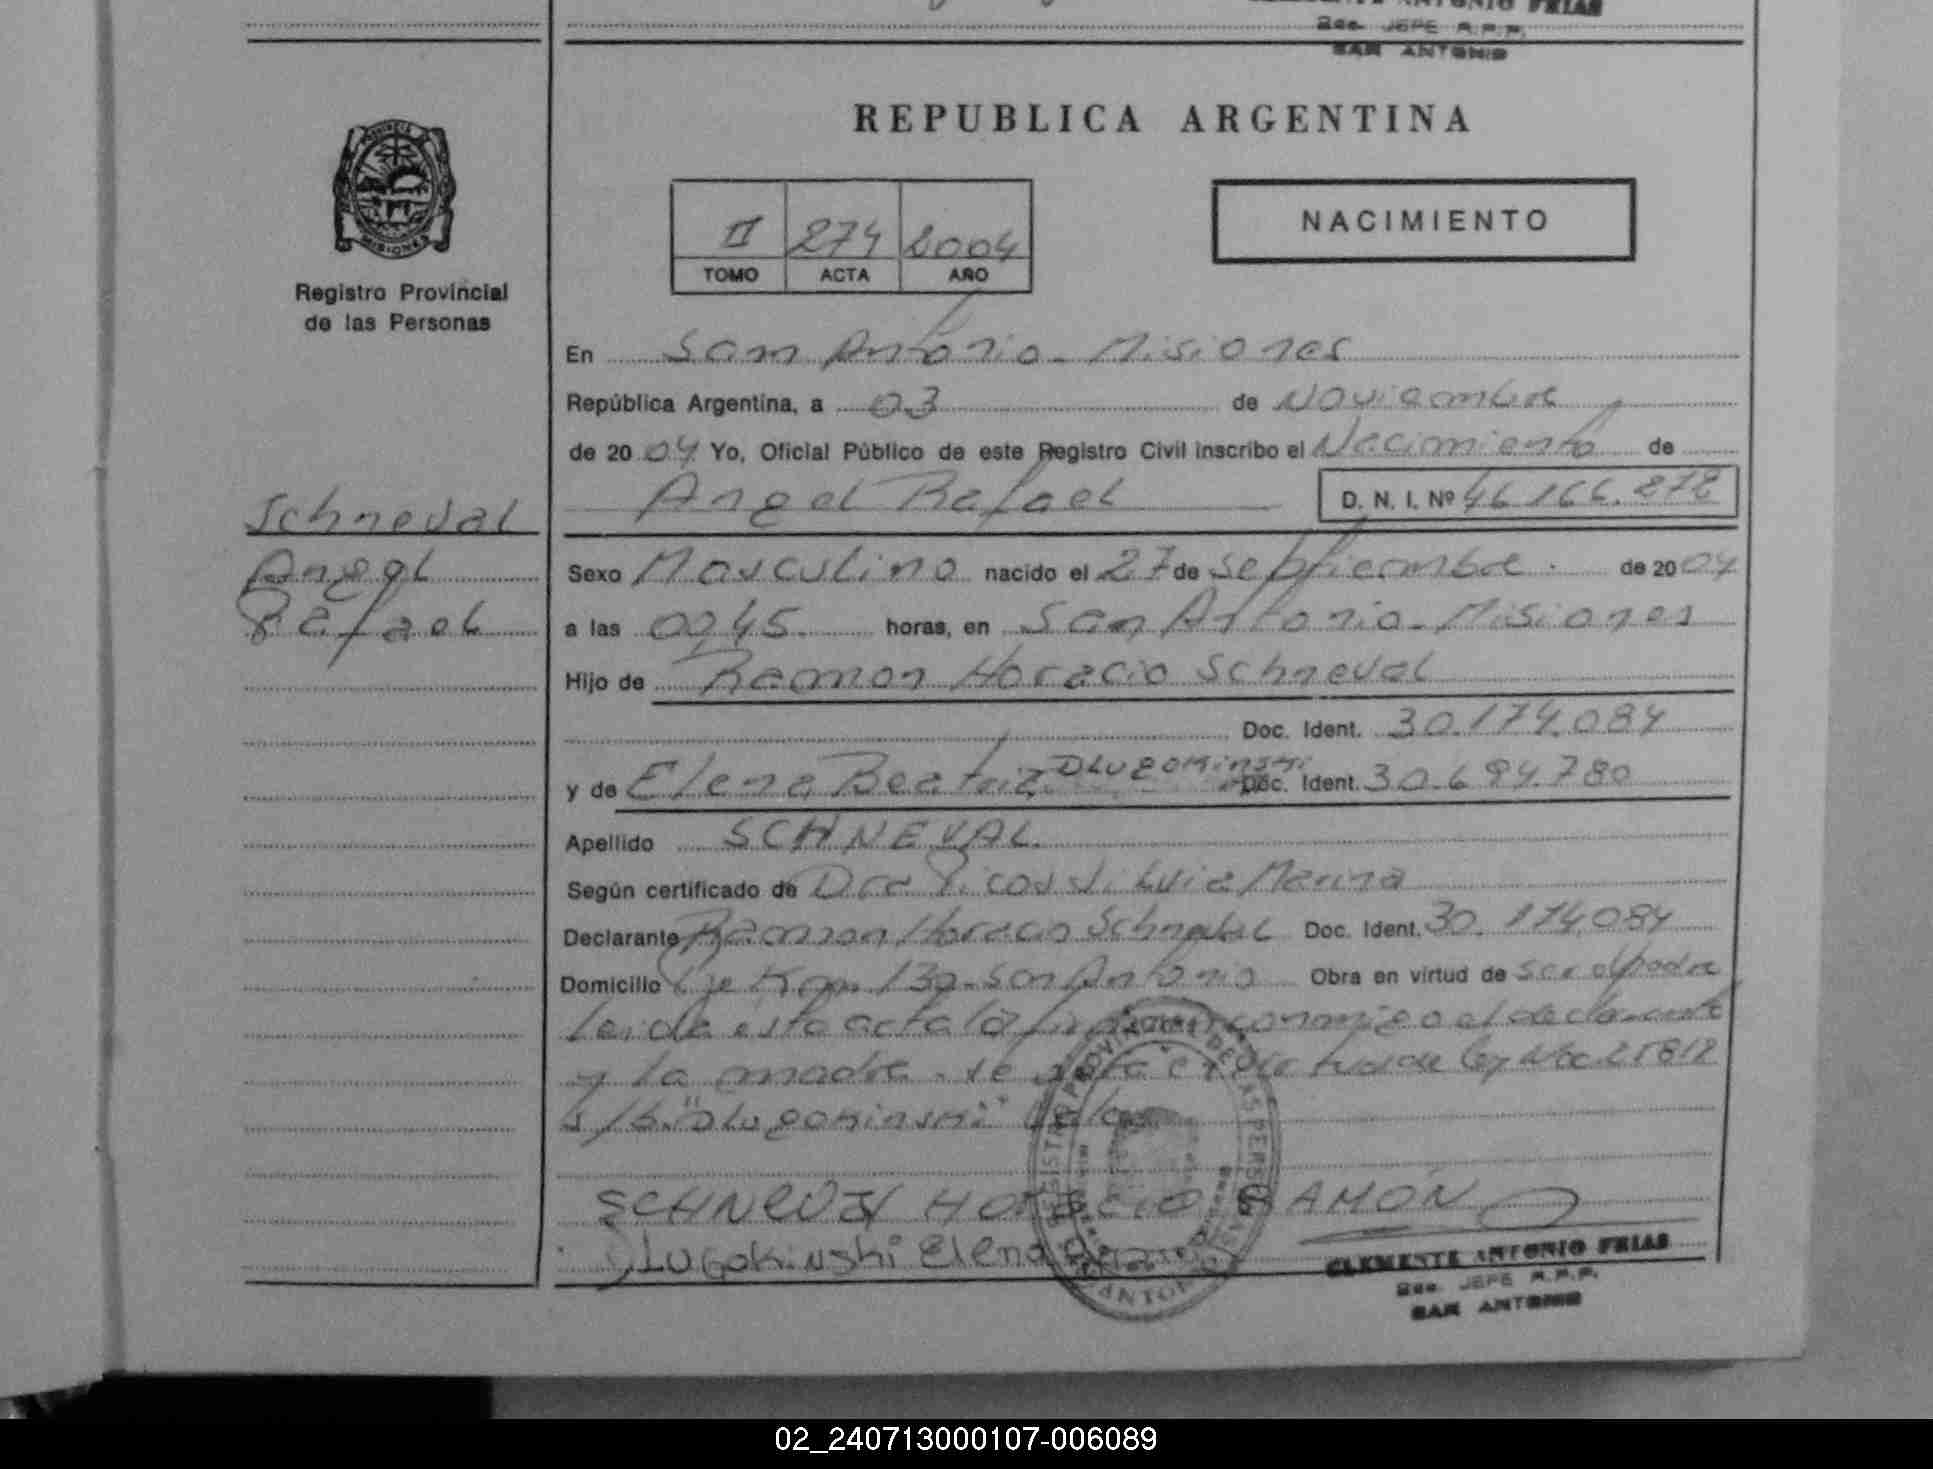 CLEMENTE ANTONIO FRIAS
Sec. JEFE R.P.P.
SAN ANTONIO
REPUBLICA ARGENTINA
PROVINCIA
MISIONES
II 274 2004
TOMO ACTA AÑO
NACIMIENTO
Registro Provincial
de las Personas
En San Antonio - Misiones
República Argentina, a 03 de Noviembre
de 2004 Yo, Oficial Público de este Registro Civil inscribo el Nacimiento de
Angel Rafael D. N. I. Nº 46.166.278
Schneval
Angel
Rafael
Sexo Masculino nacido el 27 de Septiembre de 2004
a las 00,45 horas, en San Antonio - Misiones
Hijo de Ramon Horacio Schneval
Doc. Ident. 30.174.084
y de Elena Beatriz Dlugokinski Doc. Ident. 30.694.780
Apellido SCHNEVAL
Según certificado de Dra Luisa Marina
Declarante Ramon Horacio Schneval Doc. Ident. 30.174.084
Domicilio Km 130 San Antonio Obra en virtud de ser el padre
Leida esta acta la firman conmigo el declarante
y la madre. se nota en virtud de ley Nro 25818
s/b "Dlugokinski" Vale
SCHNEVAL HORACIO RAMÓN
DLUGOKINSKI Elena Beatriz
REGISTRO PROVINCIAL DE LAS PERSONAS
CLEMENTE ANTONIO FRIAS
Sec. JEFE R.P.P.
SAN ANTONIO
02_240713000107-006089